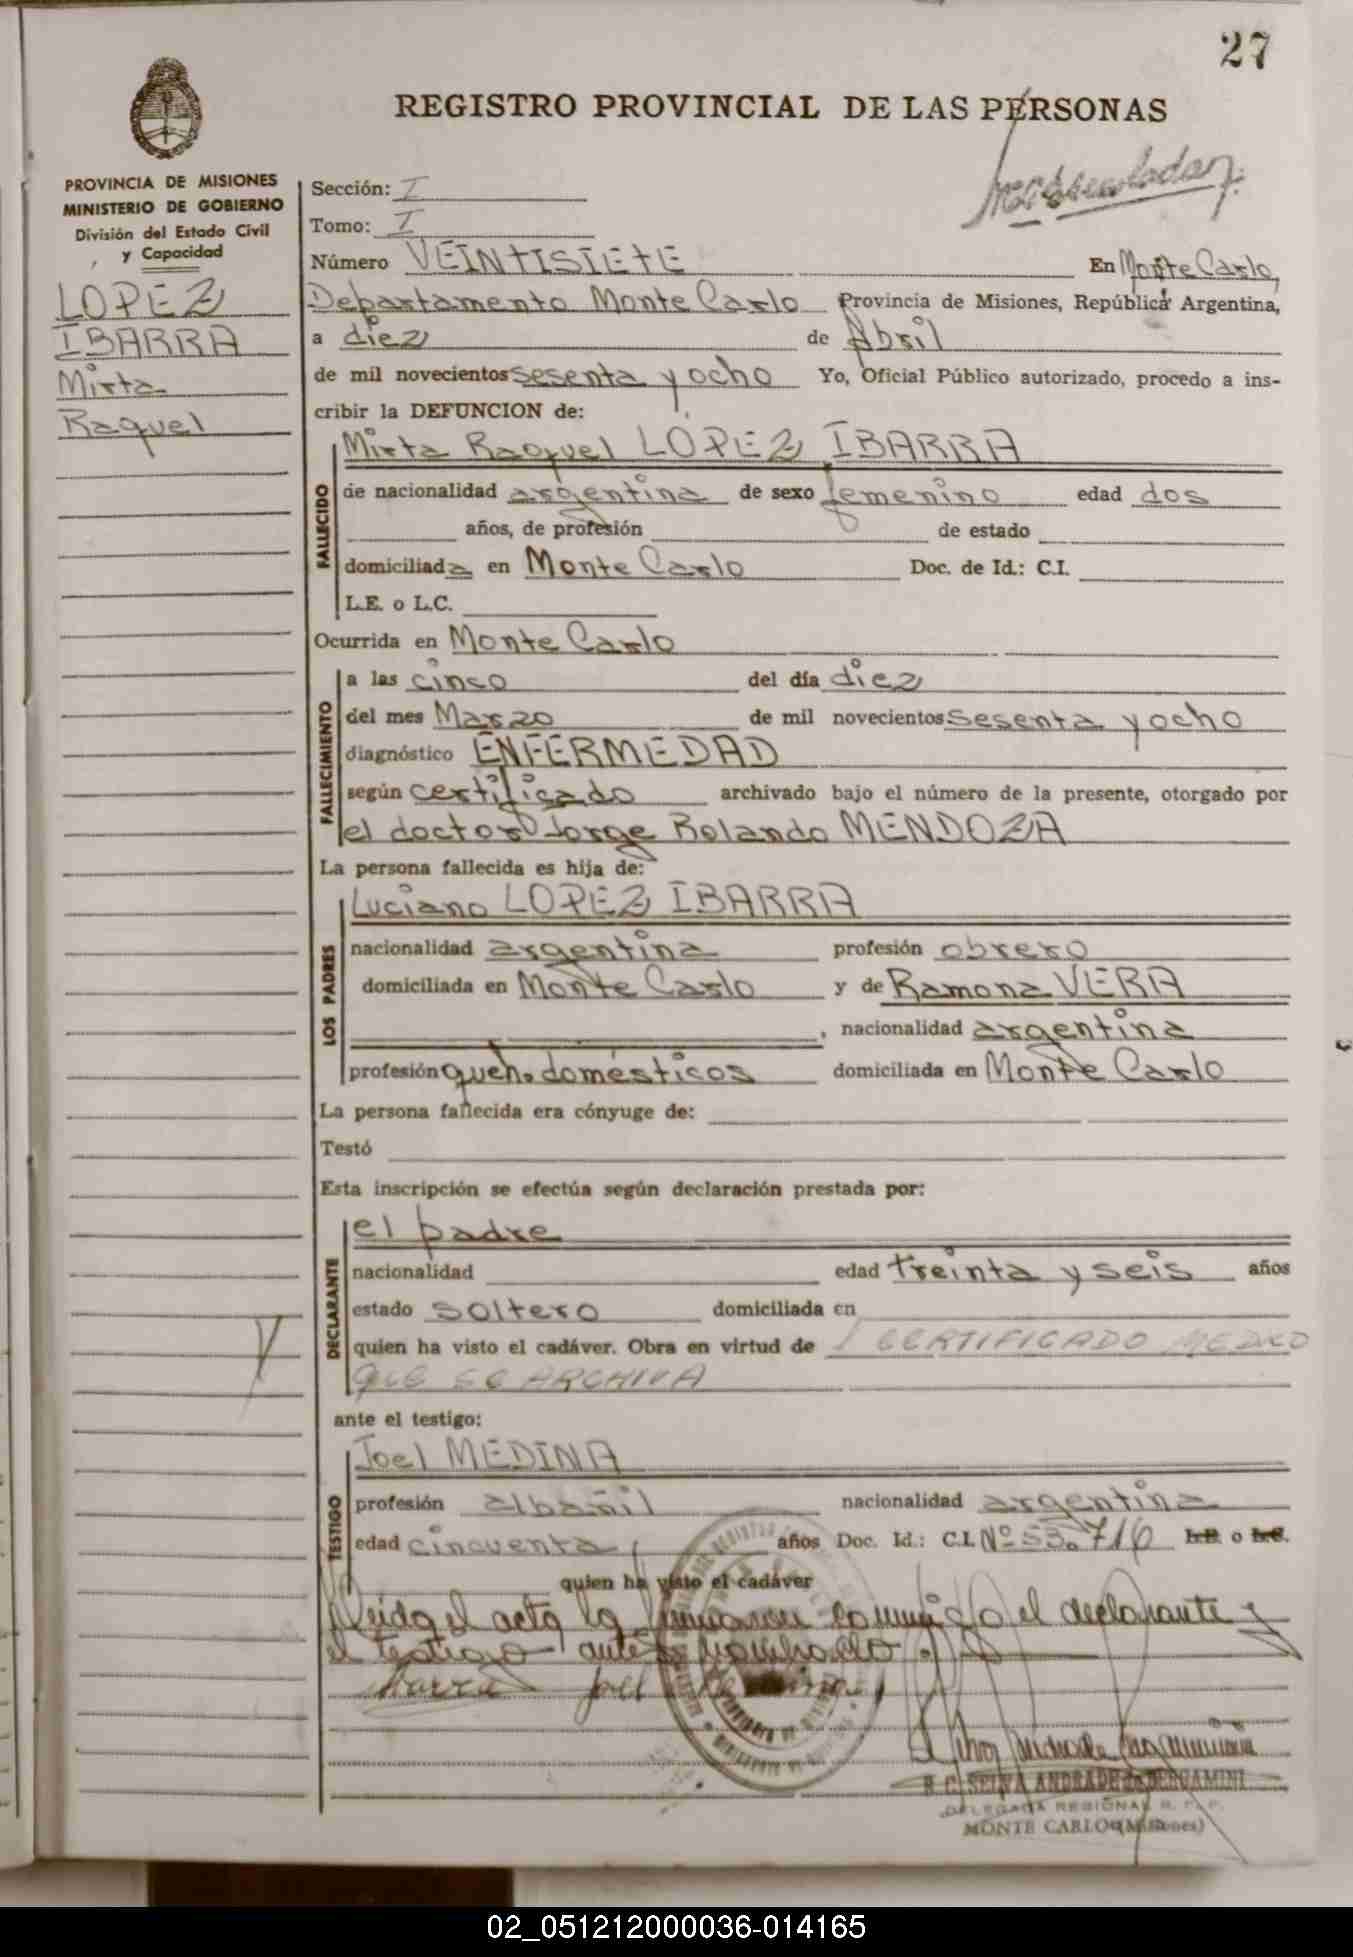 27
REGISTRO PROVINCIAL DE LAS PERSONAS
PROVINCIA DE MISIONES
MINISTERIO DE GOBIERNO
División del Estado Civil
y Capacidad
LOPEZ
IBARRA
Mirta
Raquel
Sección: I
Tomo: I
Número VEINTISIETE En Monte Carlo,
Departamento Monte Carlo Provincia de Misiones, República Argentina,
a diez de Abril
de mil novecientos sesenta y ocho Yo, Oficial Público autorizado, procedo a ins-
cribir la DEFUNCION de:
FALLECIDO
Mirta Raquel LOPEZ IBARRA
de nacionalidad argentina de sexo femenino edad dos
años, de profesión de estado
domiciliada en Monte Carlo Doc. de Id.: C.I.
L.E. o L.C.
Ocurrida en Monte Carlo
FALLECIMIENTO
a las cinco del día diez
del mes Marzo de mil novecientos sesenta y ocho
diagnóstico ENFERMEDAD
según certificado archivado bajo el número de la presente, otorgado por
el doctor Jorge Rolando MENDOZA
La persona fallecida es hija de:
LOS PADRES
Luciano LOPEZ IBARRA
nacionalidad argentina profesión obrero
domiciliada en Monte Carlo y de Ramona VERA
, nacionalidad argentina
profesión queh. domésticos domiciliada en Monte Carlo
La persona fallecida era cónyuge de:
Testó
Esta inscripción se efectúa según declaración prestada por:
DECLARANTE
el padre
nacionalidad edad treinta y seis años
estado soltero domiciliada en
quien ha visto el cadáver. Obra en virtud de CERTIFICADO MEDICO
QUE SE ARCHIVA
ante el testigo:
TESTIGO
Joel MEDINA
profesión albañil nacionalidad argentina
edad cincuenta años Doc. Id.: C.I. Nº 53.716 L.E. o L.C.
quien ha visto el cadáver
Leída el acta la firmaron conmigo el declarante y
el testigo antes nombrado
Ibarra Joel
B. C. SELVA ANDRADE de BERGAMINI
DELEGADA REGIONAL R. P. P.
MONTE CARLO (Misiones)
02_051212000036-014165